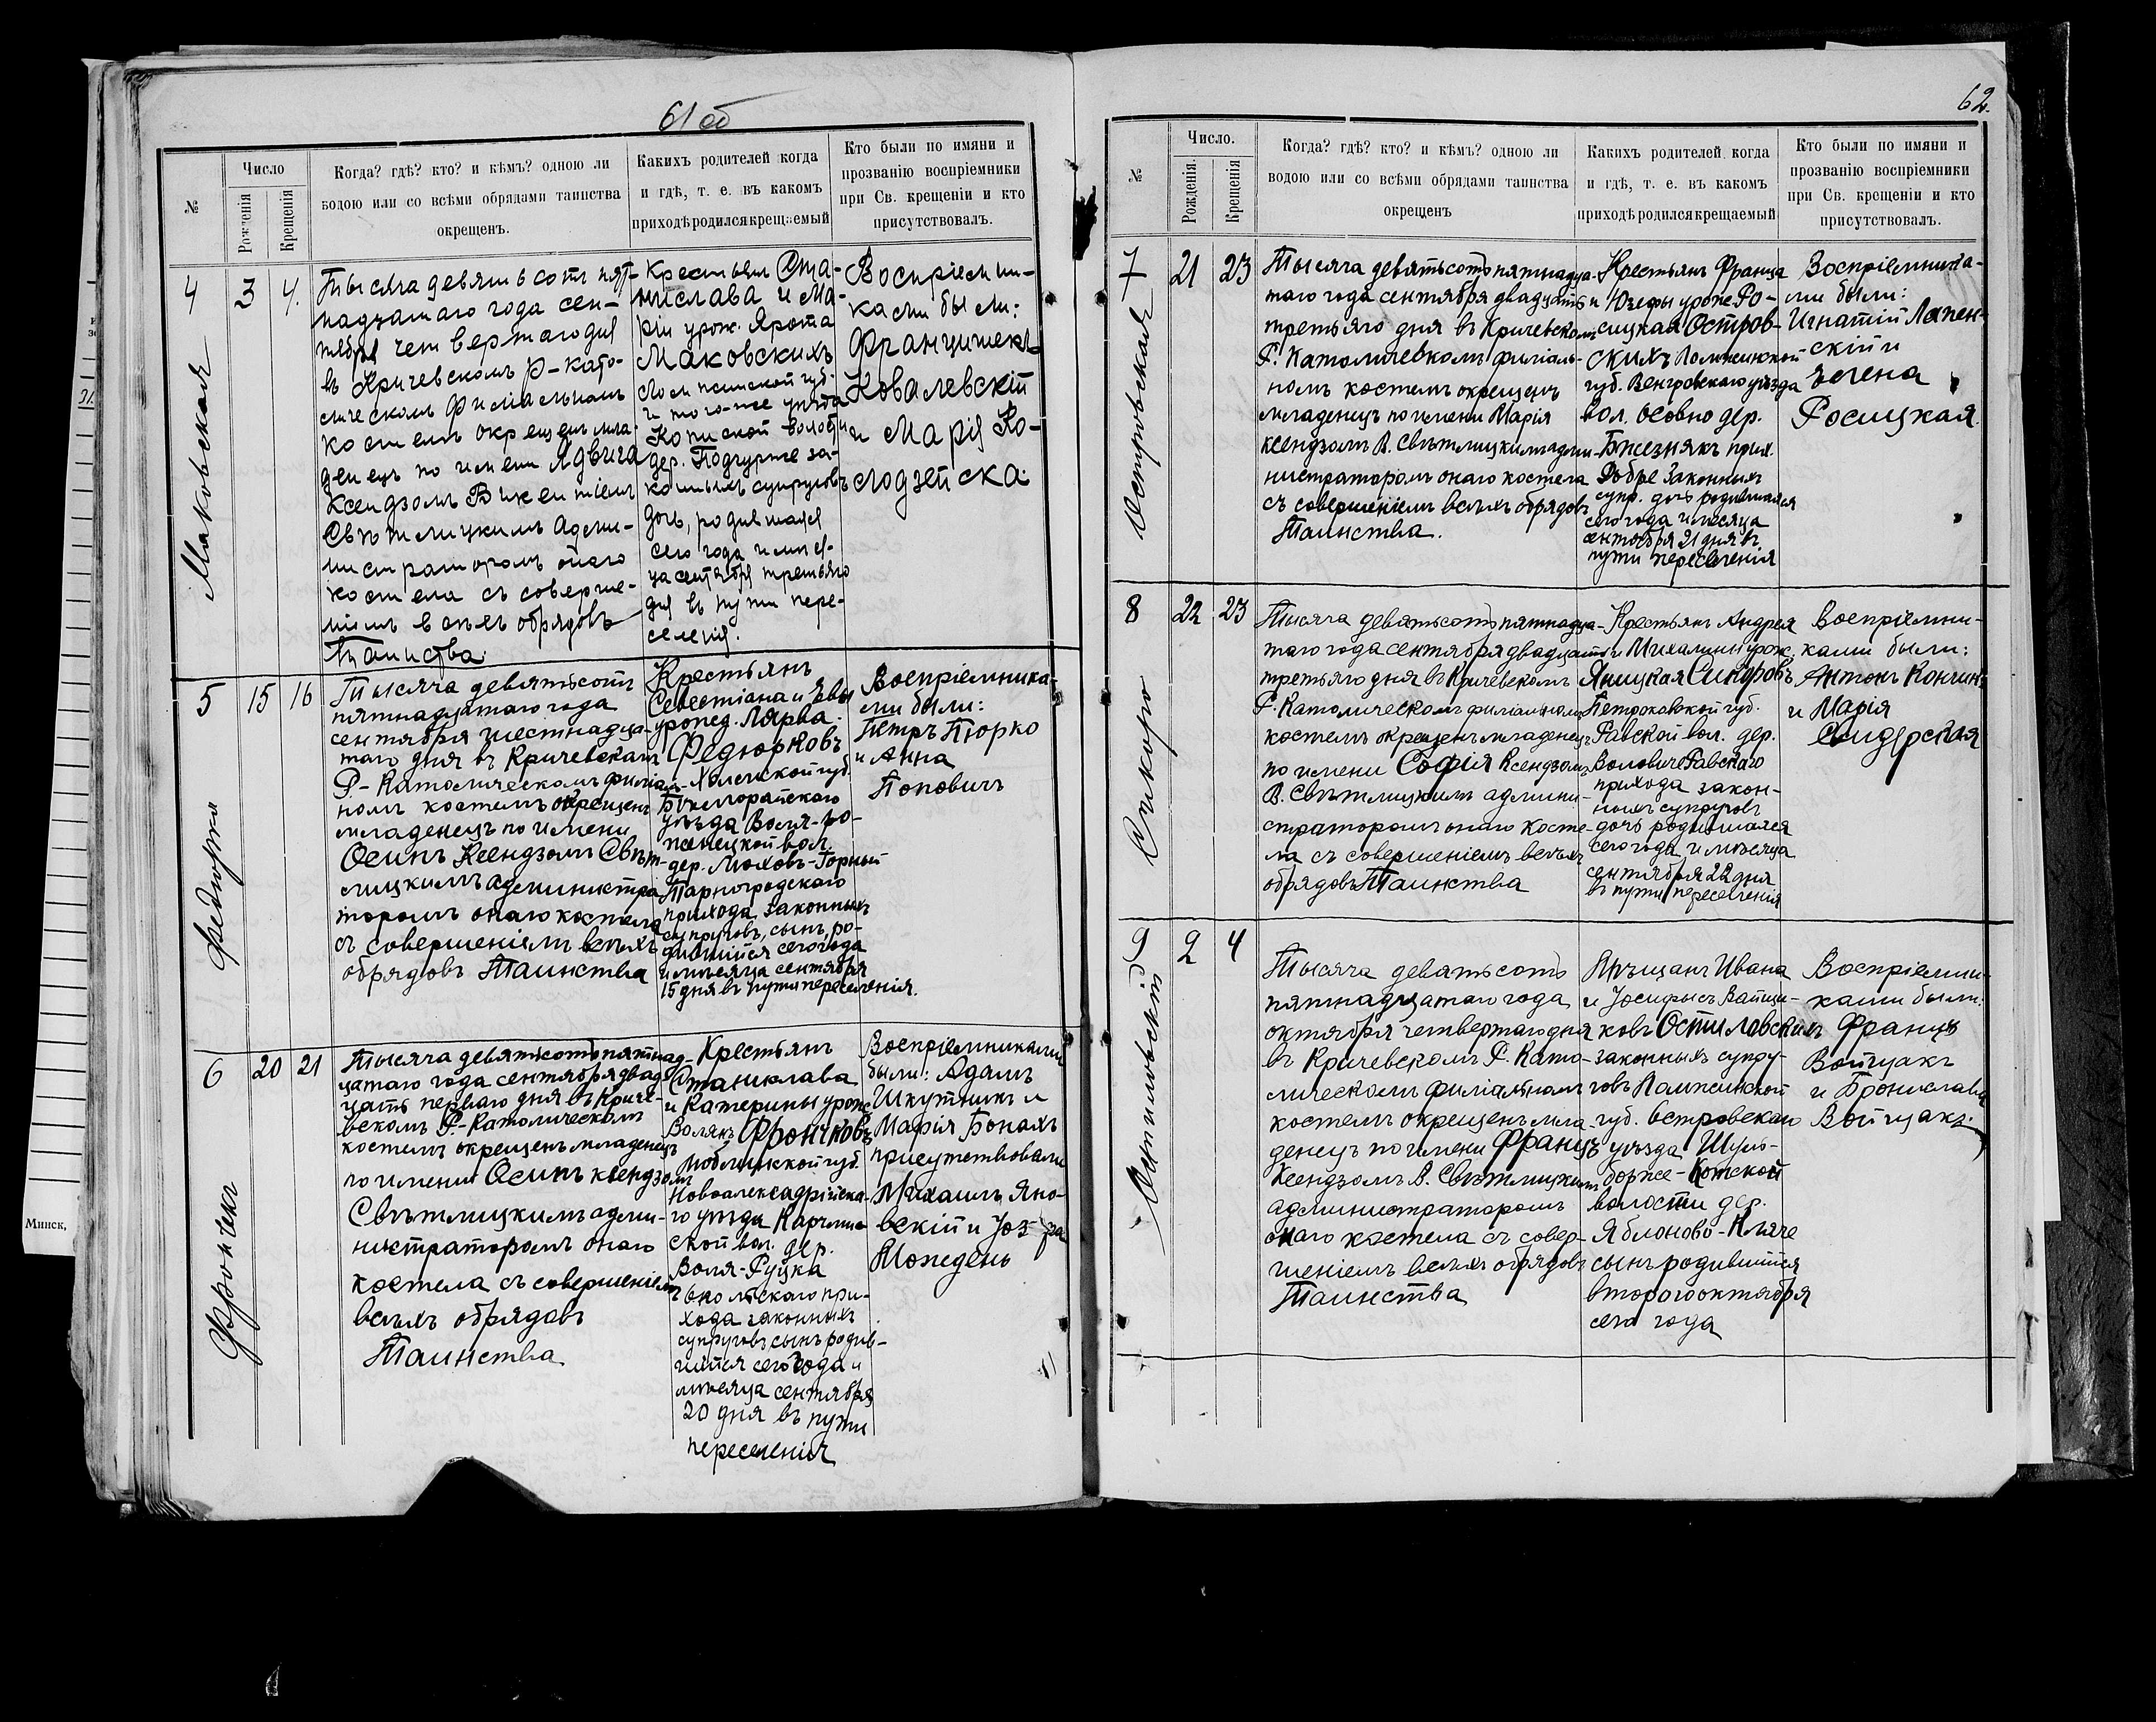 61 об
№
Число
Рожденія
Крещенія
Когда? гдѣ? кто? и кѣмъ? одною ли
водою или со всѣми обрядами таинства
окрещенъ.
Какихъ родителей когда
и гдѣ, т. е. въ какомъ
приходѣ родился крещаемый
Кто были по имяни и
прозванію воспріемники
при Св. крещеніи и кто
присутствовалъ.
4
Маковская
3
4.
Тысяча девятьсотъ пят-
надцатаго года сен-
тября четвертаго дня
въ Кричевскомъ Р-като-
лическомъ филіальномъ
костелѣ окрещенъ мла-
денецъ по имени Ядвига
Ксендзомъ Викентіемъ
Свѣтлицкимъ адми-
нистраторомъ онаго
костела съ соверше-
ніемъ всѣхъ обрядовъ
Таинства.
Крестьян Ста-
нислава и Ма-
ріи урож. Ярота
Маковскихъ
Ломжинской губ.
и того-же уѣзда
волости
дер. за-
конныхъ супруговъ
дочь, родившаяся
сего года и мѣся-
ца сентября третьяго
дня въ пути пере-
селенія.
Воспріемни-
ками были:
Францишекъ
Ковалевскій
и Марія Ко-
лодзейска.
5
Федюрко
15
16
Тысяча девятьсотъ
пятнадцатаго года
сентября шестнадца-
таго дня въ Кричевскомъ
Р-Католическомъ филіаль-
номъ костелѣ окрещенъ
младенецъ по имени
Осипъ Ксендзомъ Свѣт-
лицкимъ администра
торомъ онаго костела
съ совершеніемъ всѣхъ
обрядовъ Таинства
Крестьянъ
Севестіана и Евы
урожд. Лярва
Федюрковъ
Холмской губ.
Бѣлгорайскаго
уѣзда Воля-Ро-
жнецкой вол.
дер. Люховъ-Горный
Тарногродскаго
прихода законныхъ
супруговъ, сынъ, ро-
дившійся сего года
и мѣсяца сентября
15 дня въ пути переселенія.
Воспріемника-
ми были:
Петръ Пюрко
и Анна
Поповичъ
6
Фрончекъ
20
21
Тысяча девятьсотъ пятнад-
цатаго года сентября двад-
цать перваго дня въ Криче-
вскомъ Р.-Католическомъ
костелѣ окрещенъ младенецъ
по имени Осипъ ксендзомъ
Свѣтлицкимъ адми-
нистраторомъ онаго
костела съ совершеніемъ
всѣхъ обрядовъ
Таинства
Крестьянъ
Станислава
и Катерины урож.
Волякъ Фрончковъ
Люблинской губ.
Новоалександрійска-
го уѣзда Карчмис-
ской вол. дер.
Воля-Руцка
при-
хода законныхъ
супруговъ сынъ родив-
шійся сего года и
мѣсяца сентября
20 дня въ пути
переселенія
Воспріемниками
были: Адамъ
Шкутникъ и
Марія Бонахъ
присутствовали
Михаилъ Яно-
вскій и Юзефа
Можедень
62.
№
Число.
Рожденія.
Крещенія
Когда? гдѣ? кто? и кѣмъ? одною ли
водою или со всѣми обрядами таинства
окрещенъ
Какихъ родителей когда
и гдѣ, т. е. въ какомъ
приходѣ родился крещаемый
Кто были по имяни и
прозванію воспріемники
при Св. крещеніи и кто
присутствовалъ.
7
Островская
21
23
Тысяча девятьсотъ пятнадца-
таго года сентября двадцать
третьяго дня въ Кричевскомъ
Р. Католическомъ филіаль-
номъ костелѣ окрещенъ
младенецъ по имени Марія
ксендзомъ В. Свѣтлицкимъ адми-
нистраторомъ онаго костела
съ совершеніемъ всѣхъ обрядовъ
Таинства.
Крестьянъ Франца
и Юзефы урож. Ро-
сицкая Остров-
скихъ Ломжинской
губ. Венгровскаго уѣзда
вол. Осовно дер.
Бжезнякъ прих.
Добре законныхъ
супр. дочь родившаяся
сего года и мѣсяца
сентября 21 дня въ
пути переселенія
Воспріемника-
ми были:
Игнатій Лапен-
скій и
Елена
Росицкая.
8
Сикоро
22
23
Тысяча девятьсотъ пятнадца-
таго года сентября двадцать
третьяго дня въ Кричевскомъ
Р. Католическомъ филіальномъ
костелѣ окрещенъ младенецъ
по имени Софія Ксендзомъ
В. Свѣтлицкимъ админи-
страторомъ онаго косте-
ла съ совершеніемъ всѣхъ
обрядовъ Таинства
Крестьянъ Андрея
и Михалины урож.
Яницкая
Петроковской губ.
Равской вол. дер.
Воловичъ Равскаго
прихода закон-
ныхъ супруговъ
дочь родившаяся
сего года и мѣсяца
сентября 22 дня
въ пути переселенія
Воспріемни-
ками были:
Антонъ Кончикъ
и Марія
Свидерская
9
Остиловскій
2
4
Тысяча девятьсотъ
пятнадцатаго года
октября четвертаго дня
въ Кричевскомъ Р. Като-
лическомъ филіальномъ
костелѣ окрещенъ мла-
денецъ по имени Францъ
Ксендзомъ В. Свѣтлицкимъ
администраторомъ
онаго костела съ совер-
шеніемъ всѣхъ обрядовъ
Таинства
Мѣщанъ Ивана
и Іосифы съ Вайци-
ковъ Остиловскихъ
законныхъ супру-
говъ Ломжинской
губ. Островскаго
уѣзда Шуль-
борже-Котской
волости дер.
Яблоново-Кляче
сынъ родившійся
второго октября
сего года
Воспріемни-
ками были:
Францъ
Войцакъ
и Брониславa
Войцакъ.
Минск,